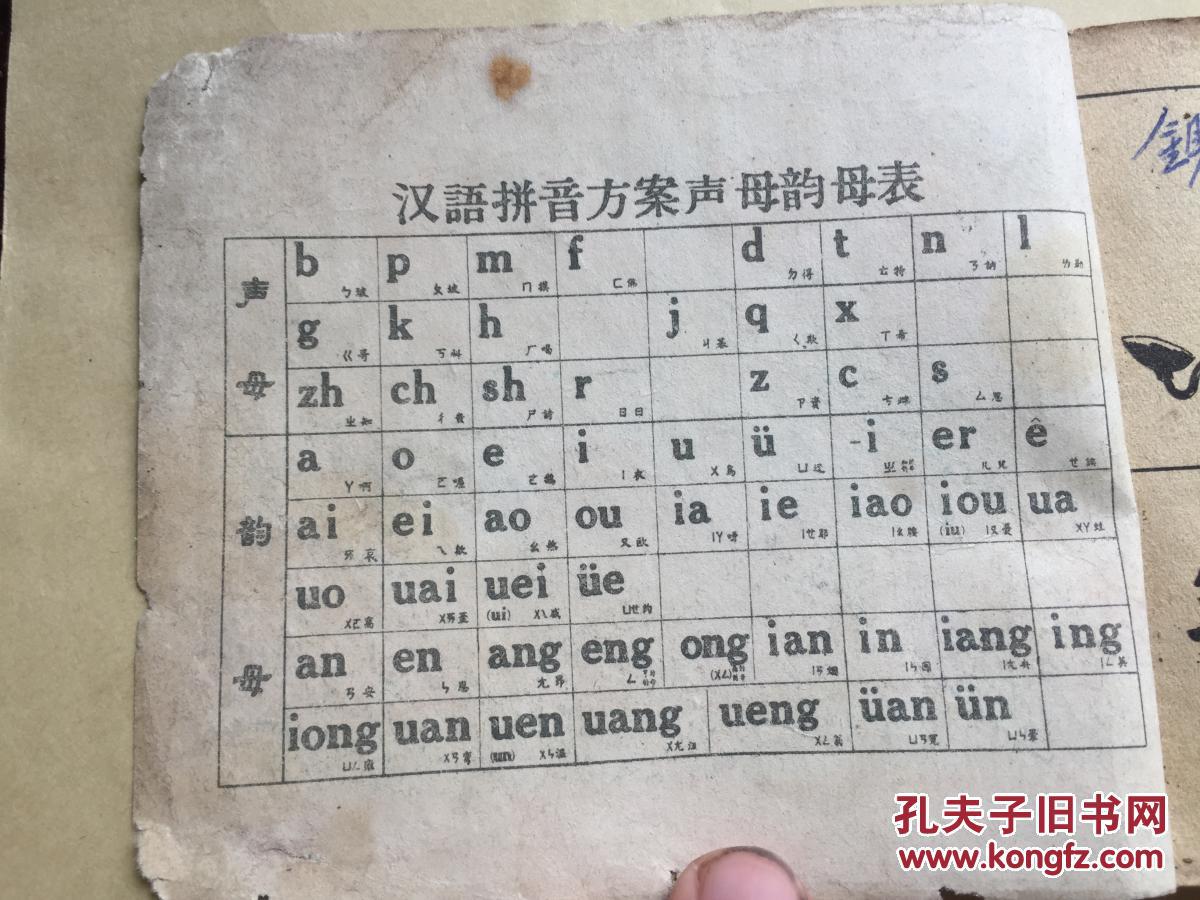 汉語拼音方案声母韵母表
声母
b ㄅ玻 p ㄆ坡 m ㄇ摸 f ㄈ佛 d ㄉ得 t ㄊ特 n ㄋ訥 l ㄌ勒
g ㄍ哥 k ㄎ科 h ㄏ喝 j ㄐ基 q ㄑ欺 x ㄒ希
zh ㄓ知 ch ㄔ sh ㄕ詩 r ㄖ日 z ㄗ資 c ㄘ s ㄙ思
韵母
a ㄚ啊 o ㄛ喔 e ㄜ鵝 i ㄧ衣 u ㄨ烏 ü ㄩ迂 -i er ㄦ兒 ê ㄝ
ai ㄞ哀 ei ㄟ欸 ao ㄠ熬 ou ㄡ欧 ia ㄧㄚ呀 ie ㄧㄝ耶 iao ㄧㄠ腰 iou (iu) ㄧㄡ憂 ua ㄨㄚ蛙
uo ㄨㄛ窩 uai ㄨㄞ歪 uei (ui) ㄨㄟ威 üe ㄩㄝ約
an ㄢ安 en ㄣ恩 ang ㄤ昂 eng ㄥ ong (ㄨㄥ) ian ㄧㄢ烟 in ㄧㄣ因 iang ㄧㄤ央 ing ㄧㄥ英
iong ㄩㄥ雍 uan ㄨㄢ弯 uen (un) ㄨㄣ温 uang ㄨㄤ汪 ueng ㄨㄥ翁 üan ㄩㄢ冤 ün ㄩㄣ暈
孔夫子旧书网
www.kongfz.com